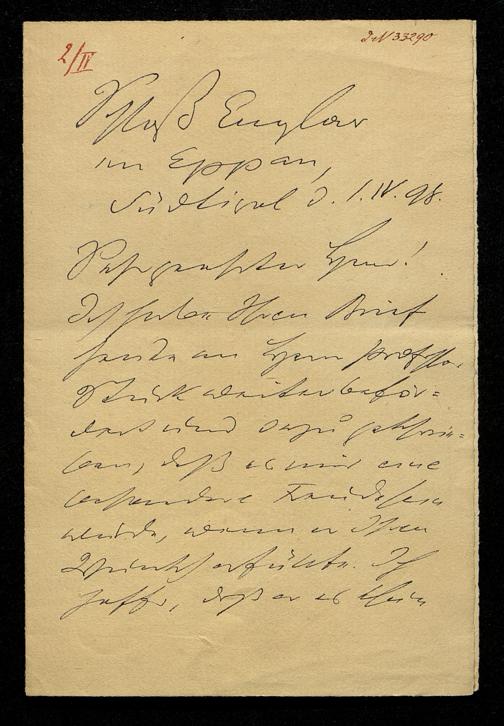 2/IV
I.N 33290
Schloß Englar
in Eppan,
Südtirol d. 1.IV.98.
Sehr geehrter Herr!
Ich habe Ihren Brief
heute an Herrn Professor
Stuck weiterbeför-
dert und dazu geschrie-
ben, daß es mir eine
besondere Freude sein
würde, wenn er Ihren
Wunsch erfüllte. Ich
hoffe, daß er es thun